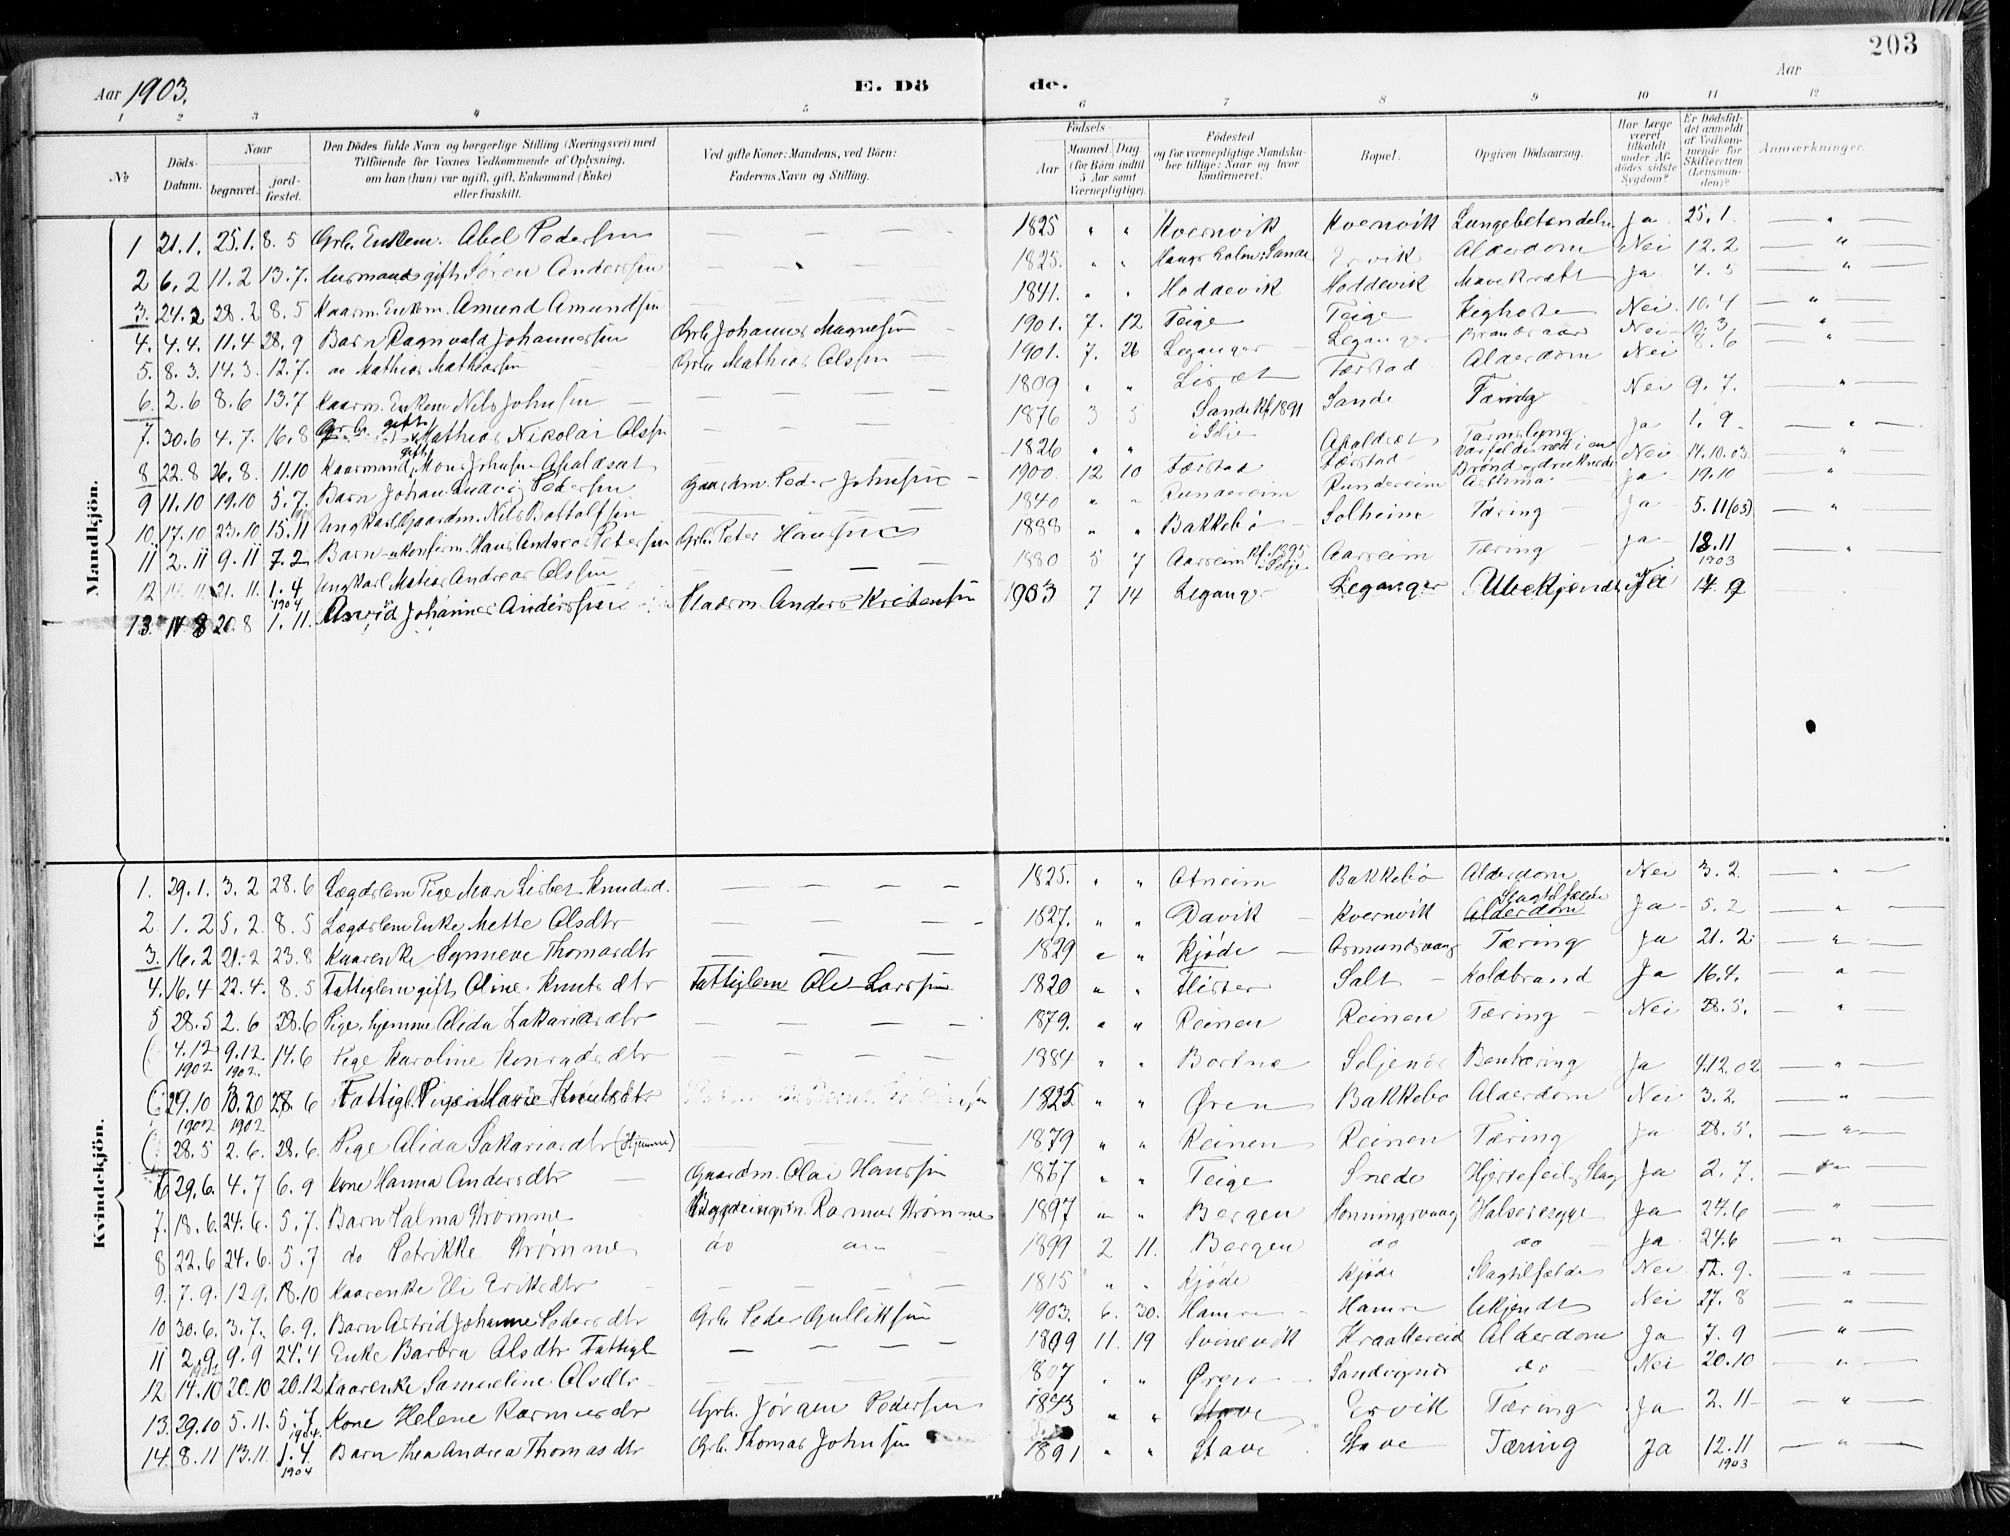 203
Aar 1903. E. Dö de. Aar
1 2 3 4 5 6 7 8 9 10 11 12
No
Döds-Datum.
Naar
begravet.
jord-fæstet.
Den Dödes fulde Navn og borgerlige Stilling (Næringsvei) med
Tilföiende for Voxnes Vedkommende af Oplysning,
om han (hun) var ugift, gift, Enkemand (Enke)
eller fraskilt.
Ved gifte Koner: Mandens, ved Börn:
Faderens Navn og Stilling.
Födsels-
Aar
Maaned. Dag.
(for Börn indtil
5 Aar samt
Værnepligtige).
Födested
og for værnepligtige Mandska-
ber tillige: Naar og hvor
konfirmeret.
Bopæl.
Opgiven Dödsaarsag.
Har Læge
været
tilkaldt
under Af-
dödes sidste
Sygdom?
Er Dödsfal-
det anmeldt
af Vedkom-
mende for
Skifteretten
(Lensman-
den)?
Anmærkninger.
Mandkjön.
1 21.1. 25.1. 8.5 Grb. Enkem. Abel Pedersen — — — — 1825 " " Kvernvik Kvernvik Lungebetændelse Ja 25.1. — " —
2 6.2 11.2 13.7. gift Søren Anderssen — — — 1825. " " Ervik Alderdom Nei 12.2 — " —
3. 24.2 28.2 8.5 Kaarm. Enkem. Amund Amundsen — — — 1841. " " Hoddevik Hoddevik Mavekræft Ja 4.5 — " —
4. 4.4. 11.4 28.9 Barn Ragnvald Johannessen Grb Johannes Magnesen 1901. 7. 12 Teige Teige Kighoste Nei 10.4 — " —
5. 8.3. 14.3. 12.7. do Mathias Mathiassen Grb. Mathias Olsen 1901. 7. 26 Leganger Leganger Brandsaar Nei 10.3 — " —
6. 2.6 8.6 13.7 Kaarm. Enkem Nils Johnsen — — — 1809 " " Lisæt Færstad Alderdom Nei 8.6 — " —
7. 30.6 4.7. 16.8 Grb. gift Mathias Nikolai Olsen — — — 1876 3 5 Sande Kf 1891 i Selje Sande Tæring Nei 9.7. — " —
8 22.8 26.8. 11.10 Kaarmand gift Mons Johnsen Apaldsæt 1826 " " Apaldsæt Tarmslyng Ja 1.9 — " —
9 11.10 19.10 5.7. Barn Johan Ludvig Pedersen Gaardm. Peder Johnsen 1900. 12 10 Færstad Færstad Brønd og druknede Nei 14.10.03 — " —
10. 17.10 23.10 15.11 Ungkarl Gaardm. Nils Bottolfsen — — — 1840 " " Rundereim Rundereim Asthma Ja 19.10 — " —
11 2.11 9.11 7.2 Barn ukonfirm. Hans Andreas Petersen Grb. Peter Hanssen 1888 " " Bakkebö Solheim Tæring Ja 5.11(03) — " —
12 21.11. 1.4 1904 Ungkarl Matias Andreas Olsen — — — 1880 5 7 Aarseim Kf. 1895 i Selje Aarseim Tæring Ja 18.11 1903 "
13. 14.8 20.8 1.11. Arvid Johannes Anderssen Pladsm. Anders Kristensen 1903 7 14 Leganger Leganger Ubekjendt Nei 14.9
Kvindekjön.
1. 29.1. 3.2 28.6 Lægdslem Pige Mari Lisbet Knudsd. — — — — 1825. " " Otneim Bakkebö Alderdom Nei 3.2. — " —
2 1.2 5.2. 8.5 Lægdslem Enke Mette Olsdtr — — — 1827. " " Davik Kvernvik Alderdom Slagtilfælde Ja 5.2 — " —
3. 16.2 21.2 23.8 Kaarenke Synneve Thomasdtr — — — 1829 " " Kjöde Osmundsvaag Tæring Ja 21.2 — " —
4. 16.4 22.4. 8.5 Fattiglem gift Oline Knutsdtr Fattiglem Ole Larssen 1820 " " Flister Salt Koldbrand Ja 16.4. — " —
5 28.5 2.6 28.6 Pige, hjemme Alida Zakariasdtr — — — — 1879. " " Reinen Reinen Tæring Nei 28.5. — " —
( 4.12 1902 9.12. 1902. 14.6 Pige Karoline Konradsdtr — — — — 1884 " " Bortne Seljenes Bentæring Ja 4.12.02 — " —
( 29.10 1902 13.20 1902 28.6 Fattigl. Pige Marie Knutsdtr 1825. " " Øren Bakkebö Alderdom Nei 3.2. — " —
( 28.5 2.6. 28.6. Pige Alida Sakariasdtr (Hjemme) — — — — 1879 " " Reinen Reinen Tæring Ja 28.5. — " —
6 29.6. 4.7 6.9 Kone Hanna Andersdtr Gaardm. Olai Hanssen 1867 " " Teige Snede Hjertefeil, Slag Ja 2.7. — " —
7. 18.6. 24.6. 5.7. Barn Valma Strømme Byggeingn. Rasmus Strømme 1897 " " Bergen Honningsvaag Halsesyge Ja 24.6 — " —
8 22.6 24.6. 5.7 do Petrikke Strømme do 1899 2 11. Bergen do do Ja 24.6 — " —
9. 7.9. 12.9. 18.10 Kaarenke Eli Eriksdtr — — — 1815 " " Kjöde Kjöde Slagtilfælde Nei 12.9. — " —
10 30.6. 3.7. 6.9. Barn Astrid Johanne Pedersdtr Grb. Peder Gullikssen 1903. 6. 30. Hamre Hamre Ukjendt Nei 27.8 — " —
11 2.9 9.9 24.4 Enke Barbra Olsdtr Fattigl — — — — 11. 19 Svinevik Kraakereid Alderdom Ja 7.9 — " —
12 14.10 20.10 20.12 Kaarenke Samueline Olsdtr — — — — " " Øren do Nei 20.10 — " —
13. 29.10 5.11. 5.7 1904. Kone Helene Rasmusdtr Grb. Jörgen Pedersen 1843 " " Stave Ervik Tæring Ja 2.11 — " —
14. 8.11 13.11. 1.4. 1904 Barn Thea Andrea Thomasdtr Grb. Thomas Johnsen 1891 " " Stave Stave Tæring Ja 12.11 1903 — " —